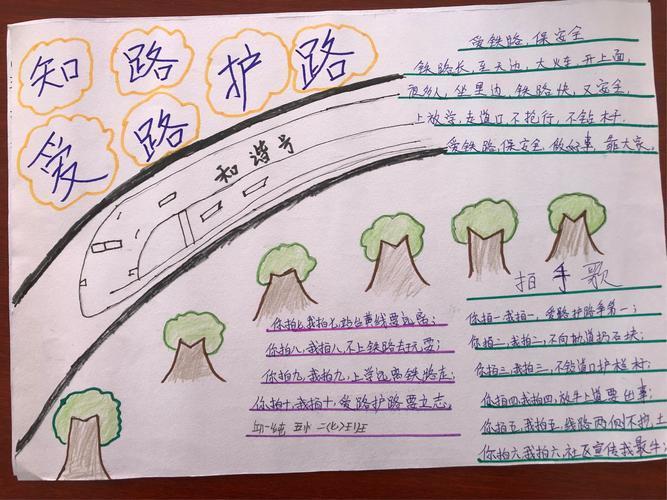 知路护路
爱路
和谐号
爱铁路,保安全
铁路长,至天边,大火车,开上面,
很多人,坐里边,铁路快,又安全,
上放学,走道口,不抢行,不钻杆,
爱铁路,保安全,做好事,靠大家。
拍手歌
你拍一,我拍一,爱路护路争第一;
你拍二,我拍二,不向轨道扔石块;
你拍三,我拍三,不钻道口护栏杆;
你拍四我拍四,放牛入道要出事;
你拍五,我拍五,线路两侧不挖土
你拍六我拍六,社区宣传我最牛;
你拍七,我拍七,站台黄线要远离;
你拍八,我拍八不上铁路去玩耍;
你拍九,我拍九,上学远离铁路走;
你拍十,我拍十,爱路护路要立志。
二(七)班